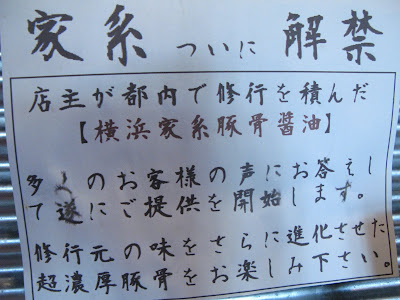 家系 ついに 解禁
店主が都内で修行を積んだ
【横浜家系豚骨醤油】
多くのお客様の声にお答えし
て遂にご提供を開始します。
修行元の味をさらに進化させた
超濃厚豚骨をお楽しみ下さい。